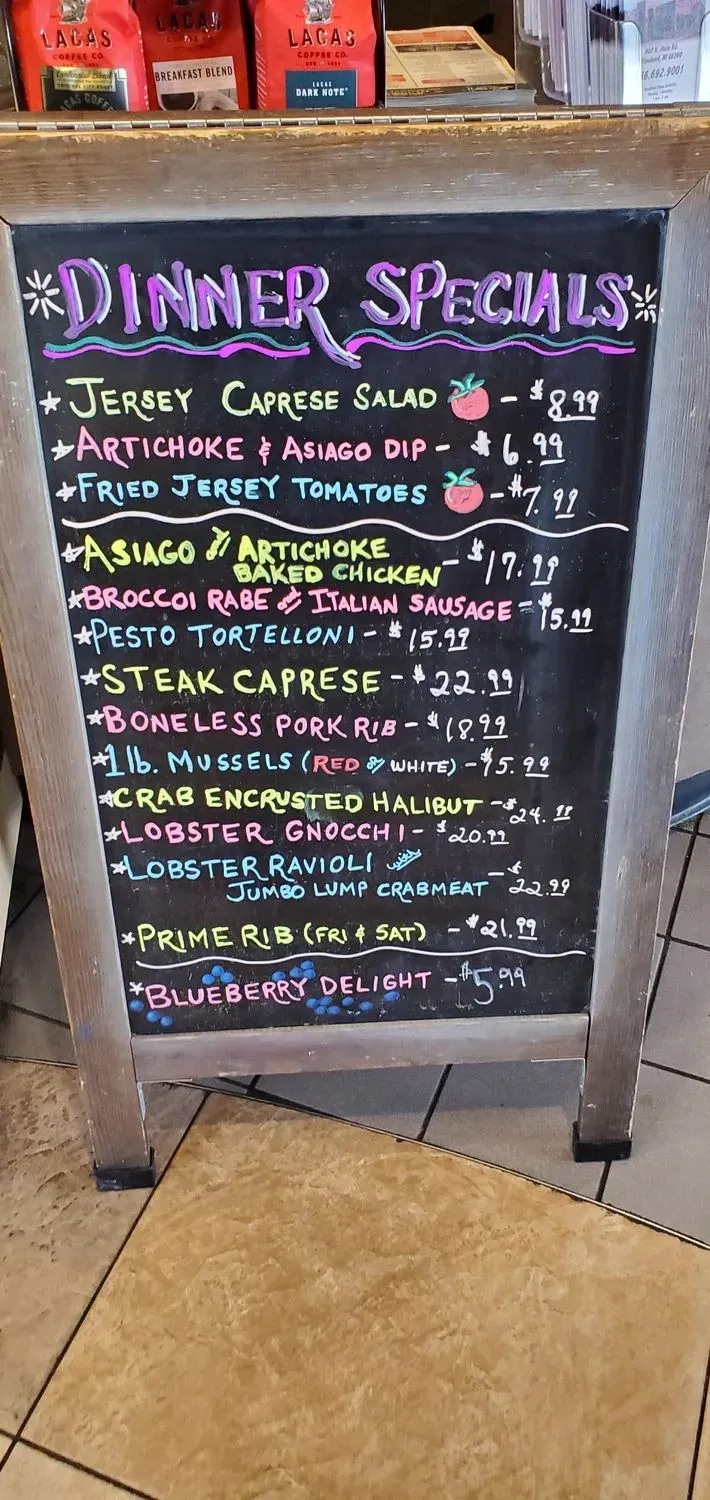 LACAS
COFFEE CO.
LACAS
COFFEE CO.
BREAKFAST BLEND
LACAS
COFFEE CO.
LACAS
DARK NOTE
DINNER SPECIALS
JERSEY CAPRESE SALAD - $8.99
ARTICHOKE & ASIAGO DIP - $6.99
FRIED JERSEY TOMATOES - $7.99
ASIAGO & ARTICHOKE
BAKED CHICKEN - $17.99
BROCCOI RABE and ITALIAN SAUSAGE - $15.99
PESTO TORTELLONI - $15.99
STEAK CAPRESE - $22.99
BONELESS PORK RIB - $18.99
1lb. MUSSELS (RED or WHITE) - $15.99
CRAB ENCRUSTED HALIBUT - $24.99
LOBSTER GNOCCHI - $20.99
LOBSTER RAVIOLI with
JUMBO LUMP CRABMEAT - $22.99
PRIME RIB (FRI & SAT) - $21.99
BLUEBERRY DELIGHT - $5.99